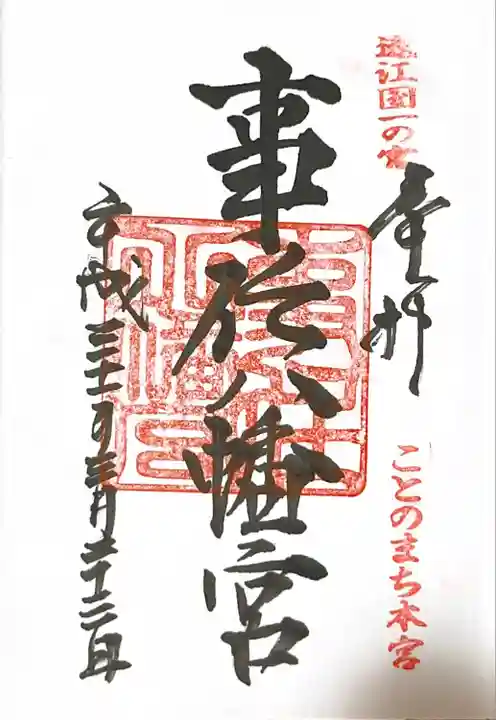 遠江国一の宮
奉拝
ことのまち本宮
事任八幡宮
平成三十一年三月二十二日